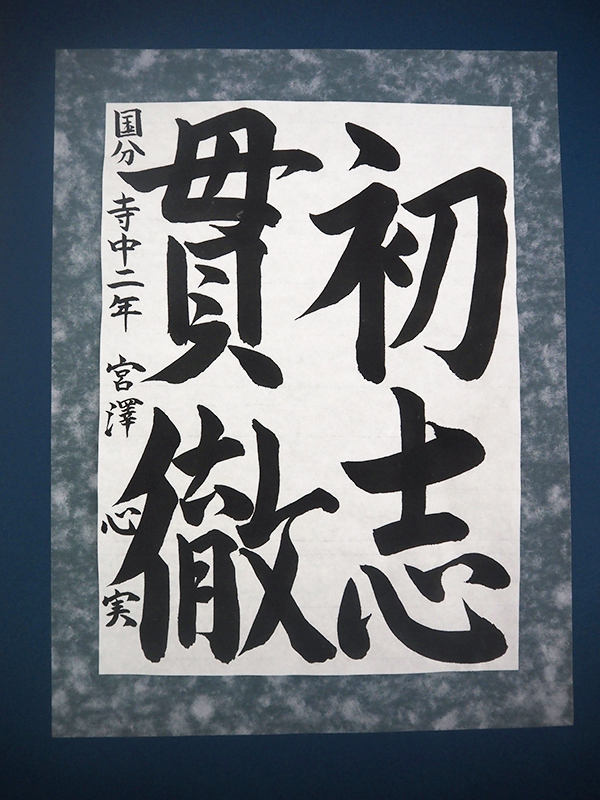 初志
貫徹
国分寺中二年 宮澤心実